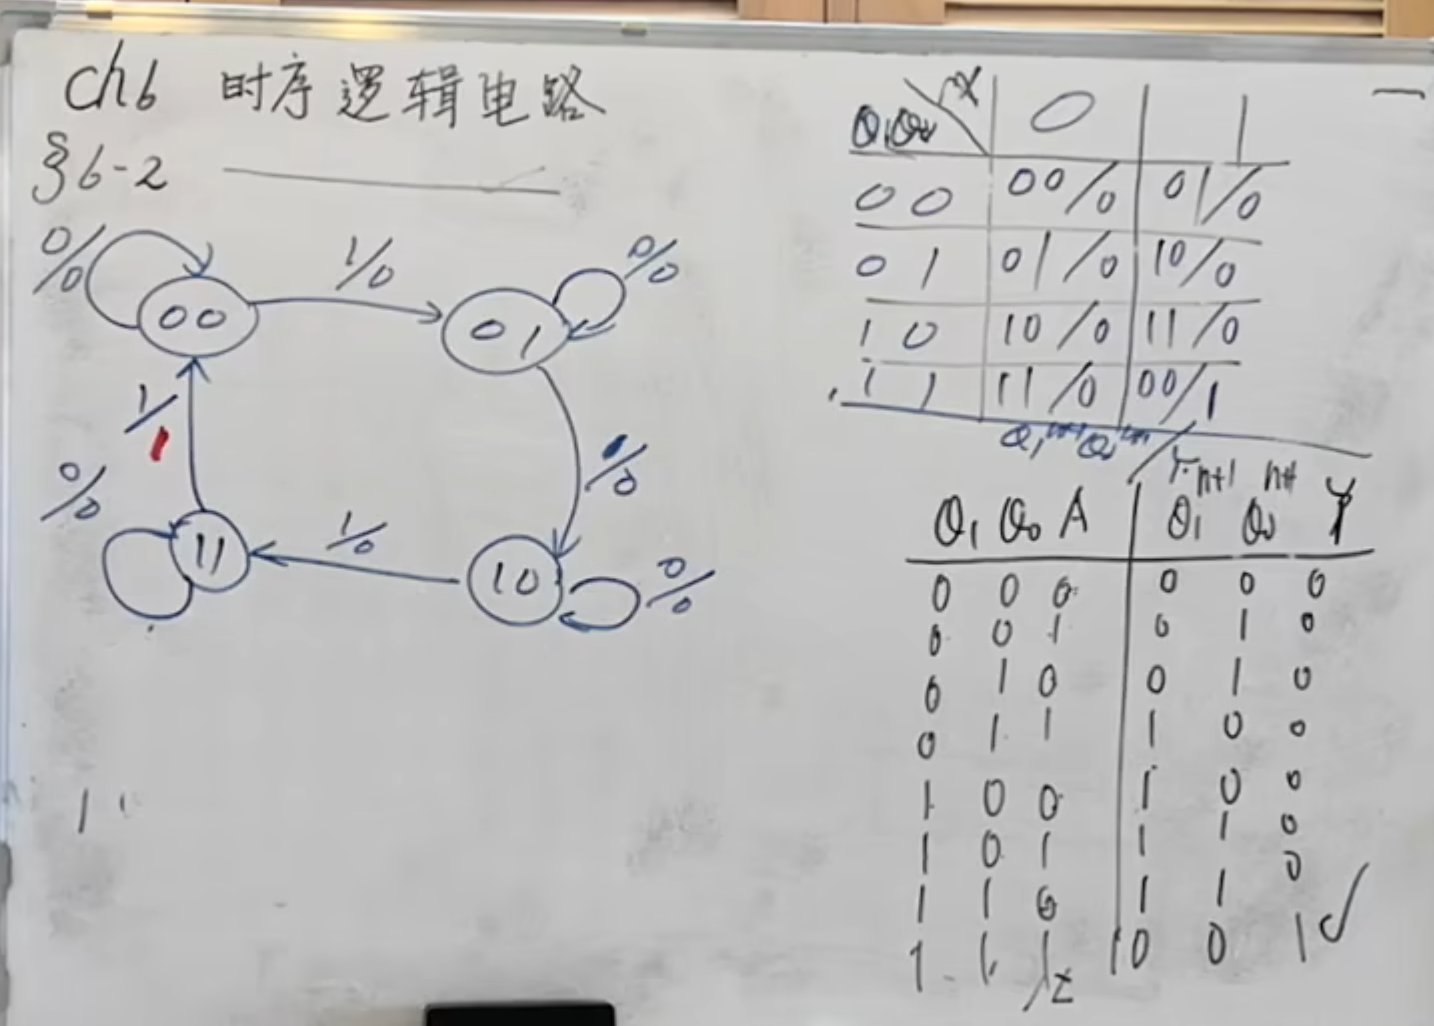 ch6 时序逻辑电路
§6-2
0/0
1/0
0/0
00
01
1/1
/0
0/0
1/0
11
10
0/0
Q₁Q₀ 0 1
0 0 00/0 01/0
0 1 01/0 10/0
1 0 10/0 11/0
1 1 11/0 00/1
Q₁ⁿ⁺¹Q₀ⁿ⁺¹/Y
Q₁ Q₀ A Q₁ⁿ⁺¹ Q₀ⁿ⁺¹ Y
0 0 0 0 0 0
0 0 1 0 1 0
0 1 0 0 1 0
0 1 1 1 0 0
1 0 0 1 0 0
1 0 1 1 1 0
1 1 0 1 1 0
1 1 1 0 0 1 ✓